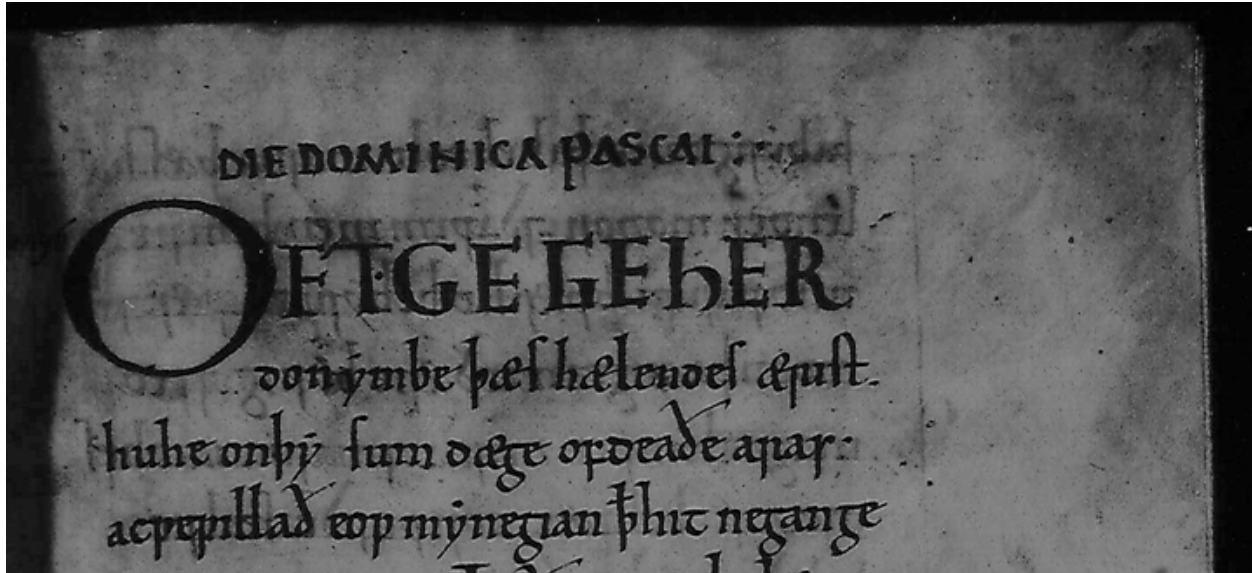 DIE DOMINICA PASCAI :·
OFT GE GEhER
don ẏmbe þæs hælendes ærıst.
hu he on þẏſ ſum dæge of deaðe aras·
ac ƿe ƿıllað eoƿ mẏnegıan ꝥ hıt ne gange